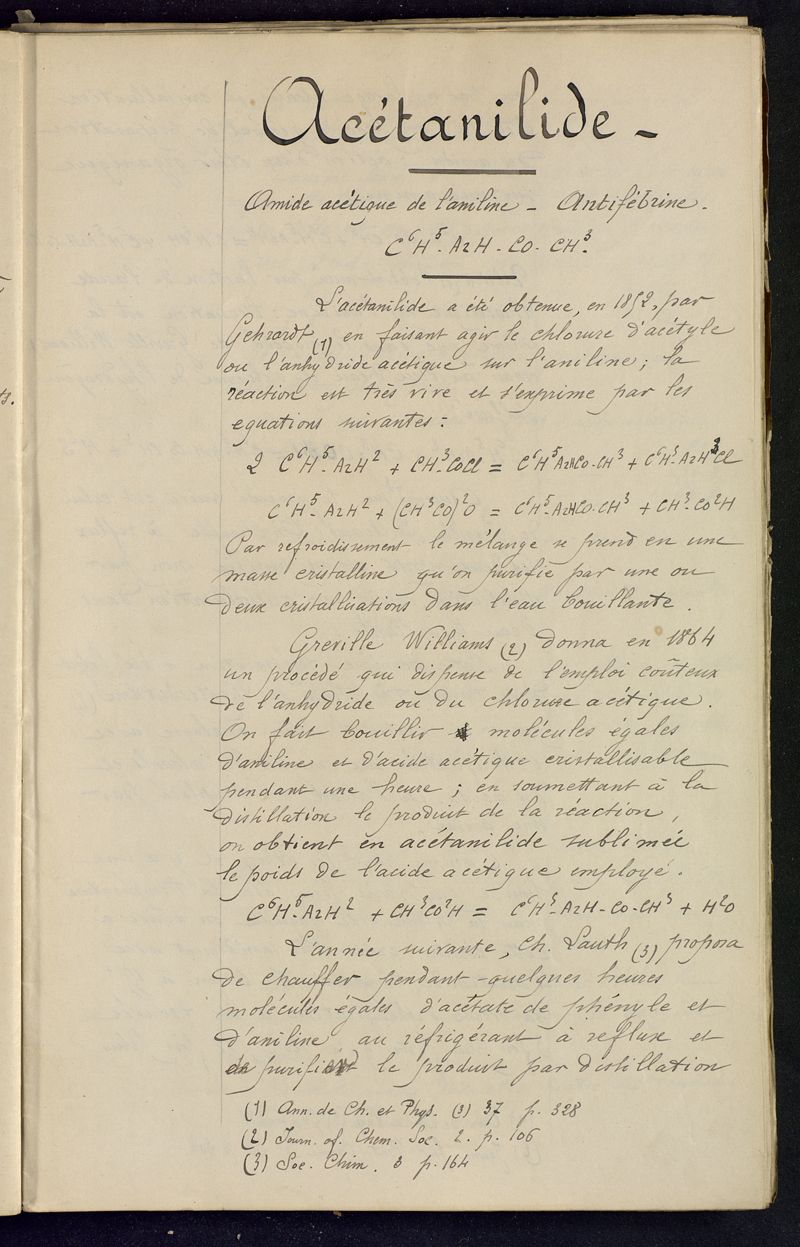 Acétanilide -
Amide acétique de l'aniline - Antifébrine -
C⁶H⁵- AzH - CO - CH³-
L'acétanilide a été obtenue, en 1852, par
Gehrardt (1) en faisant agir le chlorure d'acétyle
ou l'anhydride acétique sur l'aniline ; la
réaction est très vive et s'exprime par les
equations suivantes :
2 C⁶H⁵- AzH² + CH³-COCl = C⁶H⁵AzHCO-CH³ + C⁶H⁵-AzH³Cl
C⁶H⁵- AzH² + (CH³CO)²O = C⁶H⁵-AzHCO-CH³ + CH³-CO²H
Par refroidissement le mélange se prend en une
masse cristalline qu'on purifie par une ou
deux cristallisations dans l'eau bouillante.
Greville Williams (2) donna en 1864
un procédé qui dispense de l'emploi coûteux
de l'anhydride ou du chlorure acétique.
On fait bouillir molécules égales
d'aniline et d'acide acétique cristallisable
pendant une heure ; en soumettant à la
distillation le produit de la réaction,
on obtient en acétanilide sublimée
le poids de l'acide acétique employé.
C⁶H⁵- AzH² + CH³CO²H = C⁶H⁵-AzH-CO-CH³ + H²O
L'année suivante, Ch. Lauth (3) proposa
de chauffer pendant quelques heures
molécules égales d'acétate de phényle et
d'aniline au réfrigérant à reflux et
purifiant le produit par distillation
(1) Ann. de Ch. et Phys. (3) 37 p. 328
(2) Journ. of. Chem. Soc. 2. p. 106
(3) Soc. Chim. 3 p. 164
ts.